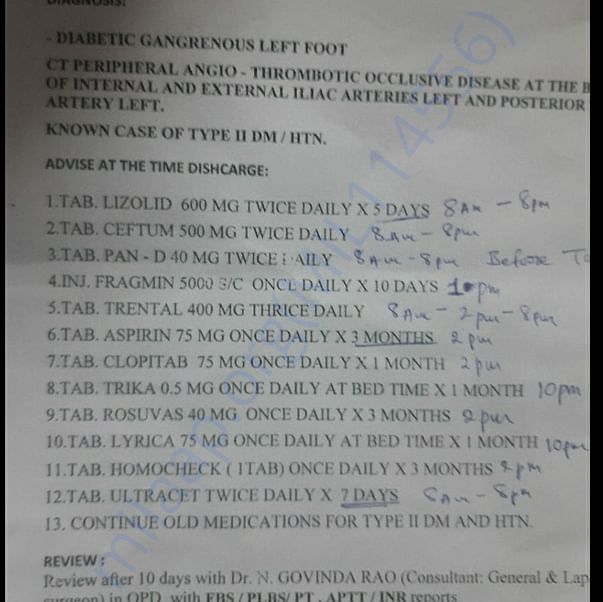 DIAGNOSIS:
- DIABETIC GANGRENOUS LEFT FOOT
CT PERIPHERAL ANGIO - THROMBOTIC OCCLUSIVE DISEASE AT THE
OF INTERNAL AND EXTERNAL ILIAC ARTERIES LEFT AND POSTERIOR
ARTERY LEFT.
KNOWN CASE OF TYPE II DM / HTN.
ADVISE AT THE TIME DISHCARGE:
1.TAB. LIZOLID 600 MG TWICE DAILY X 5 DAYS 8Am - 8pm
2.TAB. CEFTUM 500 MG TWICE DAILY 8Am - 8pm
3.TAB. PAN - D 40 MG TWICE AILY 8Am - 8pm Before
4.INJ. FRAGMIN 5000 S/C ONCE DAILY X 10 DAYS pm
5.TAB. TRENTAL 400 MG THRICE DAILY 8Am - 2pm - 8pm
6.TAB. ASPIRIN 75 MG ONCE DAILY X 3 MONTHS 2pm
7.TAB. CLOPITAB 75 MG ONCE DAILY X 1 MONTH 2pm
8.TAB. TRIKA 0.5 MG ONCE DAILY AT BED TIME X 1 MONTH 10pm
9.TAB. ROSUVAS 40 MG ONCE DAILY X 3 MONTHS 2pm
10.TAB. LYRICA 75 MG ONCE DAILY AT BED TIME X 1 MONTH 10pm
11.TAB. HOMOCHECK ( 1TAB) ONCE DAILY X 3 MONTHS pm
12.TAB. ULTRACET TWICE DAILY X 7 DAYS 8Am - 8pm
13. CONTINUE OLD MEDICATIONS FOR TYPE II DM AND HTN.
REVIEW :
Review after 10 days with Dr. N. GOVINDA RAO (Consultant: General & Lap
surgeon) in OPD with FBS / PLBS/ PT , APTT / INR reports